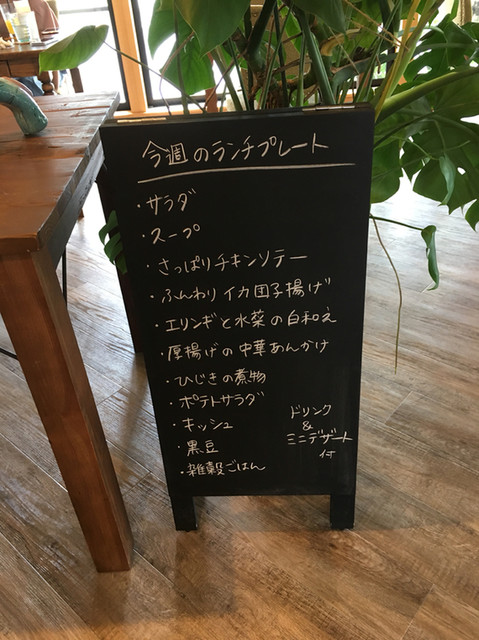 今週のランチプレート
・サラダ
・スープ
・さっぱりチキンソテー
・ふんわりイカ団子揚げ
・エリンギと水菜の白和え
・厚揚げの中華あんかけ
・ひじきの煮物
・ポテトサラダ
・キッシュ
・黒豆
・雑穀ごはん
ドリンク
&
ミニデザート
付